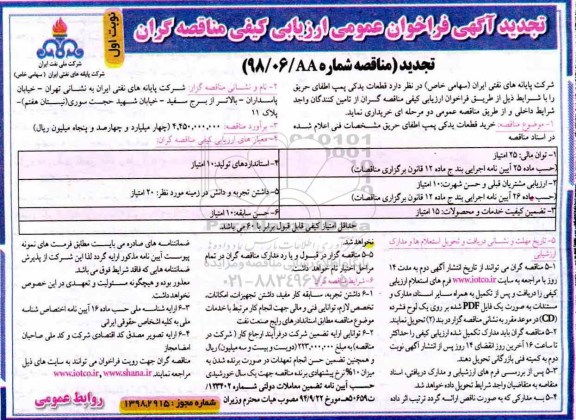 تجدید آگهی فراخوان عمومی ارزیابی کیفی مناقصه گران
نوبت اول
تجدید (مناقصه شماره ۹۸/۰۶/AA)
شرکت ملی نفت ایران
شرکت پایانه های نفتی ایران (سهامی خاص)
شرکت پایانه های نفتی ایران (سهامی خاص) در نظر دارد قطعات یدکی پمپ اطفای حریق
را با شرایط ذیل از طریق فراخوان ارزیابی کیفی مناقصه گران از تامین کنندگان واجد
شرایط داخلی و از طریق مناقصه عمومی دو مرحله ای خریداری نماید.
۱-موضوع مناقصه: خرید قطعات یدکی پمپ اطفای حریق مشخصات فنی اعلام شده
در اسناد مناقصه
۲-نام و نشانی مناقصه گزار: شرکت پایانه های نفتی ایران به نشانی تهران - خیابان
پاسداران - بالاتر از برج سفید - خیابان شهید حجت سوری (نیستان هفتم)-
پلاک ۱۱
۳-برآورد مناقصه: ۴,۴۵۰,۰۰۰,۰۰۰ (چهار میلیارد و چهارصد و پنجاه میلیون ریال)
۴-معیارهای ارزیابی کیفی مناقصه گران:
۱- توان مالی: ۲۵ امتیاز
(حسب ماده ۲۵ آیین نامه اجرایی بند ج ماده ۱۲ قانون برگزاری مناقصات)
۴-استانداردهای تولید: ۱۰ امتیاز
۲-ارزیابی مشتریان قبلی و حسن شهرت: ۱۰ امتیاز
(حسب ماده ۲۶ آیین نامه اجرایی بند ج ماده ۱۲ قانون برگزاری مناقصات)
۵-داشتن تجربه و دانش در زمینه مورد نظر: ۲۰ امتیاز
۳- تضمین کیفیت خدمات و محصولات: ۱۵ امتیاز
۶-حسن سابقه: ۱۰ امتیاز
حداقل امتیاز کیفی قابل قبول برابر با ۶۰ می باشد.
۵-تاریخ مهلت و نشانی دریافت و تحویل استعلام ها و مدارک
ارزشیابی
۵-۱ مناقصه گران می توانند از تاریخ انتشار آگهی دوم به مدت ۱۴
روز با مراجعه به سایت www.iotco.ir فرم های استعلام ارزیابی
کیفی را دریافت و پس از تکمیل به همراه سایر اسناد، مدارک و
مستندات به صورت یک فایل PDF شده بر روی یک لوح فشرده
(CD) در موعد مقرر به نشانی مناقصه گزار در بند (۲) تحویل نمایند.
۵-۲ مناقصه گران باید مدارک تکمیل شده ارزیابی کیفی را حداکثر
تا ساعت ۱۶ آخرین روز انقضای ۱۴ روز پس از انتشار آگهی نوبت
دوم به کمیته فنی بازرگانی تحویل دهند.
۵-۳ پس از ارزشیابی، دریافت اسناد و شرایط ارجاع کار و اسناد
مناقصه به متقاضیان واجد شرایط ارسال خواهد شد.
۵-۴ به مدارکی که به صورت ناقص ارائه گردد ترتیب اثر داده
نخواهد شد.
۵-۵ مناقصه گزار در قبول و یا رد مدارک مناقصه گران در تمام
مراحل اختیار تام خواهد داشت.
۶-شرایط مناقصه گران
۶-۱ داشتن تجربه، سابقه کار مفید، داشتن تجهیزات، امکانات،
تخصص لازم، توانایی فنی و مالی جهت انجام کار مرتبط با خدمات
موضوع مناقصه مطابق استانداردهای رایج صنعت نفت
۶-۲ توانایی ارایه تضمین شرکت در فرآیند ارجاع کار (شرکت در
مناقصه) به مبلغ ۲۲۳,۰۰۰,۰۰۰ (دویست و بیست و سه میلیون) ریال
و همچنین تضمین حسن انجام تعهدات در صورت برنده شدن به
میزان ۱۰% نرخ پیشنهادی برنده مناقصه جهت یک سال خورشیدی
حسب آیین نامه تضمین معاملات دولتی شماره ۱۲۳۴۰۲/
ت۵۰۶۵۹هـ مورخ ۹۴/۹/۲۲ مصوب هیات محترم وزیران
ضمانتنامه های صادره می بایست مطابق فرمت های نمونه
پیوست آیین نامه مذکور ارایه گردد لذا این شرکت از پذیرش
ضمانتنامه هایی که فاقد شرایط فوق می باشد
معذور بوده و هیچگونه مسئولیت و تعهدی در این خصوص
نخواهد داشت.
۶-۳ ارایه شناسه ملی حسب ماده ۱۶ آیین نامه اختصاص شناسه
ملی به کلیه اشخاص حقوقی ایرانی
۶-۴ ارایه تصویر مصدق کد اقتصادی شرکت و کد ملی صاحبان
امضا مجاز
مناقصه گران جهت رویت فراخوان می توانند به سایت های ذیل
مراجعه نمایند. www.shana.ir و www.iotco.ir
شماره مجوز: ۱۳۹۸.۲۹۱۵
روابط عمومی
۰۲۱-۸۸۳۴۹۶۷۰